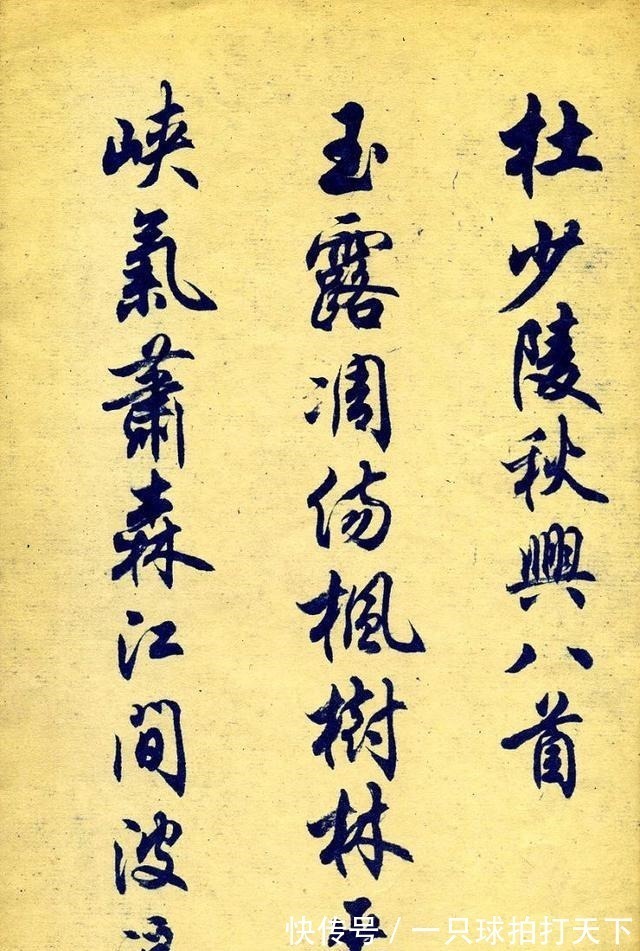 杜少陵秋興八首
玉露凋傷楓樹林
峽氣蕭森江間波
快传号/一只球拍打天下